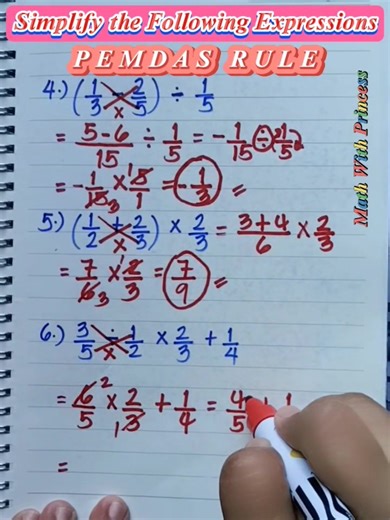 Simplify the Following Expressions
PEMDAS RULE
Math With Princess
4.) (1/3 - 2/5) ÷ 1/5
= 5-6/15 ÷ 1/5 = -1/15 ÷ 1/5
= -1/15 3 × 1 5/1 = -1/3 =
5.) (1/2 + 2/3) × 2/3 = 3+4/6 × 2/3
= 7/6 3 × 1 2/3 = 7/9 =
6.) 3/5 ÷ 1/2 × 2/3 + 1/4
= 6 2/5 × 2/1 3 + 1/4 = 4/5 + 1
=